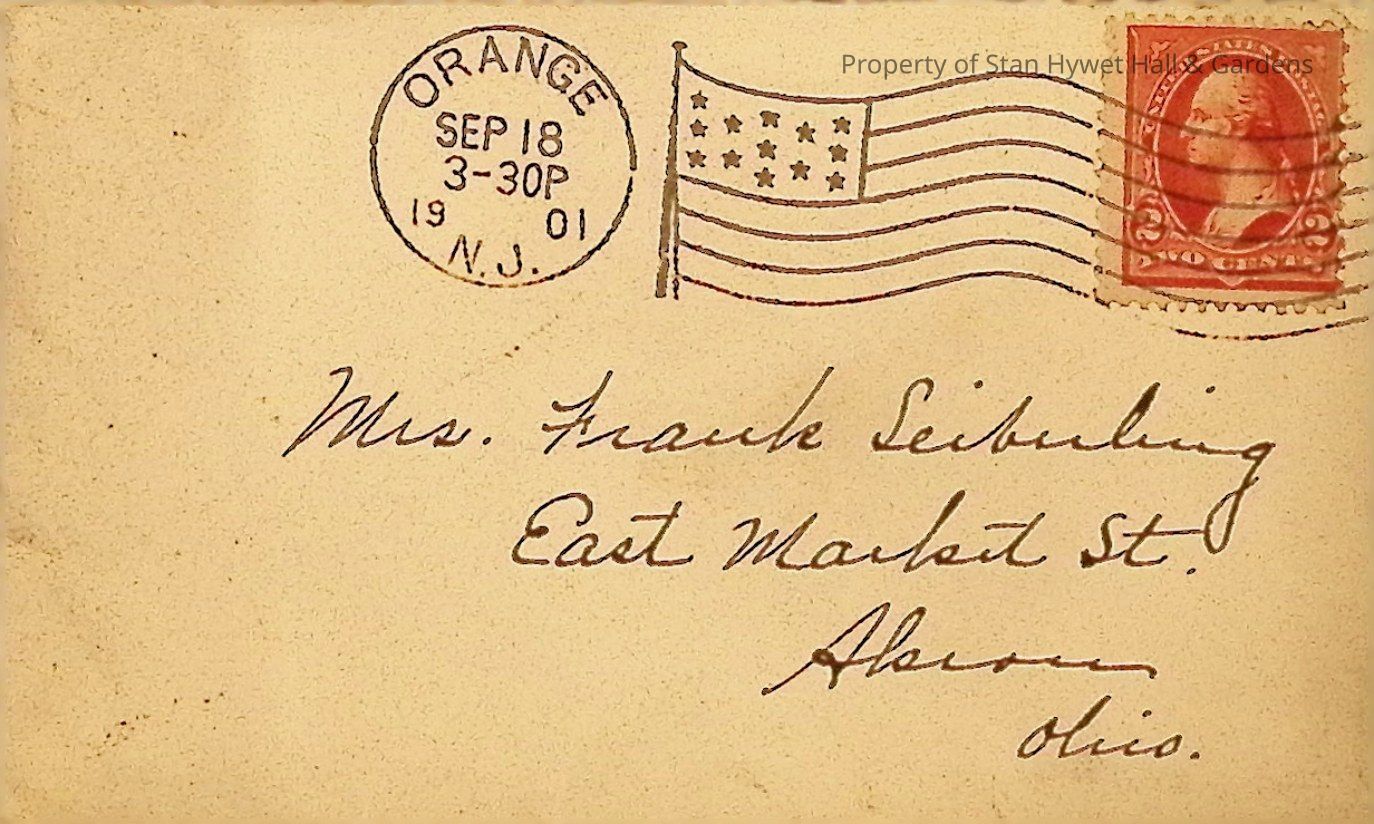 Property of Stan Hywet Hall & Gardens
ORANGE
SEP 18
3-30P
19 01
N.J.
2 2
TWO CENTS
Mrs. Frank Seiberling
East Market St.
Akron
Ohio.